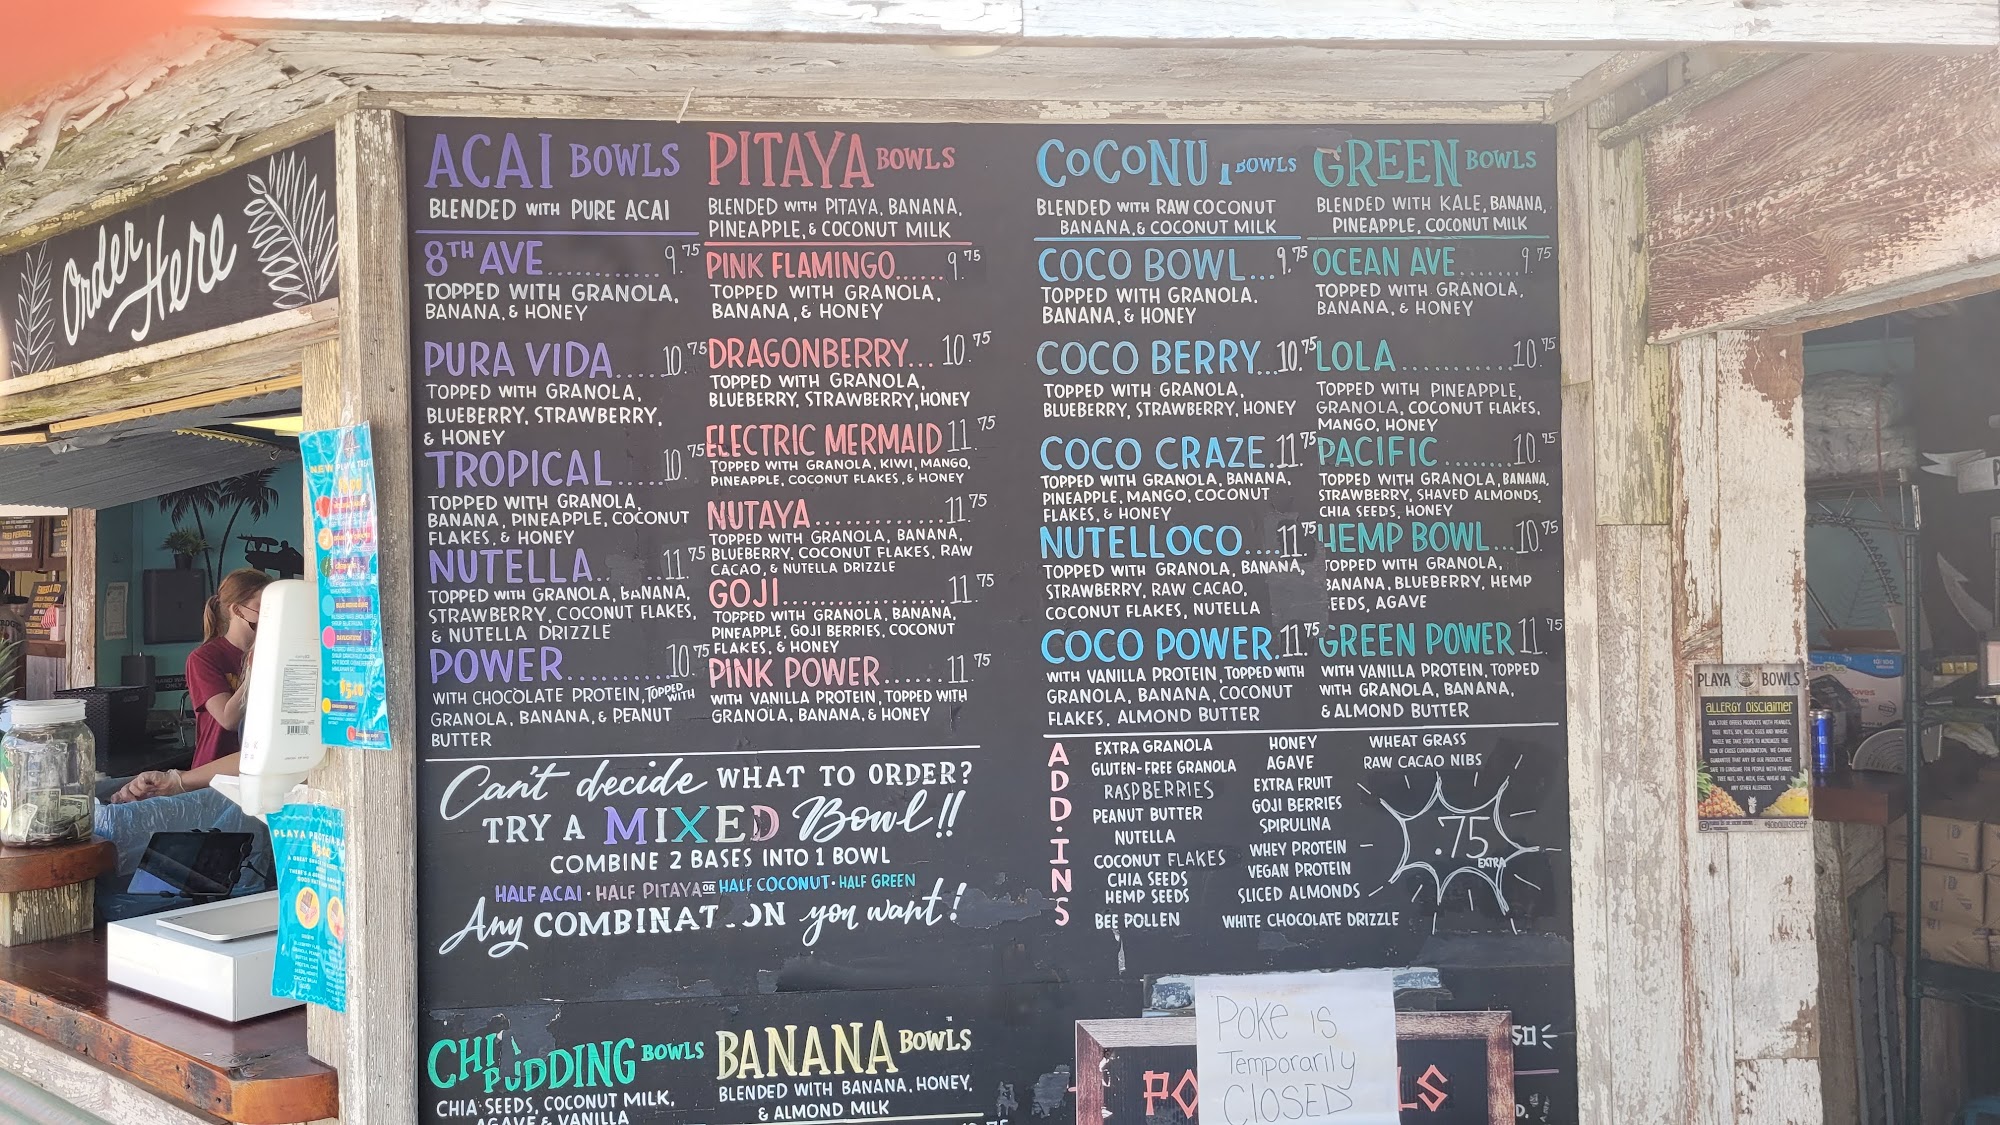 Order
Here
ACAI BOWLS
BLENDED WITH PURE ACAI
8TH AVE............9.75
TOPPED WITH GRANOLA,
BANANA, & HONEY
PURA VIDA.....10.75
TOPPED WITH GRANOLA,
BLUEBERRY, STRAWBERRY,
& HONEY
TROPICAL.....10.75
TOPPED WITH GRANOLA,
BANANA, PINEAPPLE, COCONUT
FLAKES, & HONEY
NUTELLA.. ..11.75
TOPPED WITH GRANOLA, BANANA,
STRAWBERRY, COCONUT FLAKES,
& NUTELLA DRIZZLE
POWER..........10.75
WITH CHOCOLATE PROTEIN, TOPPED WITH
GRANOLA, BANANA, & PEANUT
BUTTER
PITAYA BOWLS
BLENDED WITH PITAYA, BANANA,
PINEAPPLE, & COCONUT MILK
PINK FLAMINGO......9.75
TOPPED WITH GRANOLA,
BANANA, & HONEY
DRAGONBERRY...10.75
TOPPED WITH GRANOLA,
BLUEBERRY, STRAWBERRY, HONEY
ELECTRIC MERMAID 11.75
TOPPED WITH GRANOLA, KIWI, MANGO,
PINEAPPLE, COCONUT FLAKES, & HONEY
NUTAYA..............11.75
TOPPED WITH GRANOLA, BANANA,
BLUEBERRY, COCONUT FLAKES, RAW
CACAO, & NUTELLA DRIZZLE
GOJI.................11.75
TOPPED WITH GRANOLA, BANANA,
PINEAPPLE, GOJI BERRIES, COCONUT
FLAKES, & HONEY
PINK POWER......11.75
WITH VANILLA PROTEIN, TOPPED WITH
GRANOLA, BANANA, & HONEY
COCONUT BOWLS
BLENDED WITH RAW COCONUT
BANANA, & COCONUT MILK
COCO BOWL...9.75
TOPPED WITH GRANOLA,
BANANA, & HONEY
COCO BERRY...10.75
TOPPED WITH GRANOLA,
BLUEBERRY, STRAWBERRY, HONEY
COCO CRAZE.11.75
TOPPED WITH GRANOLA, BANANA,
PINEAPPLE, MANGO, COCONUT
FLAKES, & HONEY
NUTELLOCO....11.75
TOPPED WITH GRANOLA, BANANA,
STRAWBERRY, RAW CACAO,
COCONUT FLAKES, NUTELLA
COCO POWER.11.75
WITH VANILLA PROTEIN, TOPPED WITH
GRANOLA, BANANA, COCONUT
FLAKES, ALMOND BUTTER
GREEN BOWLS
BLENDED WITH KALE, BANANA,
PINEAPPLE, COCONUT MILK
OCEAN AVE.......9.75
TOPPED WITH GRANOLA,
BANANA, & HONEY
LOLA............10.75
TOPPED WITH PINEAPPLE,
GRANOLA, COCONUT FLAKES,
MANGO, HONEY
PACIFIC........10.75
TOPPED WITH GRANOLA, BANANA,
STRAWBERRY, SHAVED ALMONDS,
CHIA SEEDS, HONEY
HEMP BOWL...10.75
TOPPED WITH GRANOLA,
BANANA, BLUEBERRY, HEMP
EEDS, AGAVE
GREEN POWER 11.75
WITH VANILLA PROTEIN, TOPPED
WITH GRANOLA, BANANA,
& ALMOND BUTTER
Can't decide WHAT TO ORDER?
TRY A MIXED Bowl!!
COMBINE 2 BASES INTO 1 BOWL
HALF ACAI · HALF PITAYA OR HALF COCONUT · HALF GREEN
Any COMBINATION you want!
ADD-INS
EXTRA GRANOLA
GLUTEN-FREE GRANOLA
RASPBERRIES
PEANUT BUTTER
NUTELLA
COCONUT FLAKES
CHIA SEEDS
HEMP SEEDS
BEE POLLEN
HONEY
AGAVE
EXTRA FRUIT
GOJI BERRIES
SPIRULINA
WHEY PROTEIN
VEGAN PROTEIN
SLICED ALMONDS
WHITE CHOCOLATE DRIZZLE
WHEAT GRASS
RAW CACAO NIBS
.75
EXTRA
CHI PUDDING BOWLS
CHIA SEEDS, COCONUT MILK,
AGAVE & VANILLA
BANANA BOWLS
BLENDED WITH BANANA, HONEY,
& ALMOND MILK
POKE IS
Temporarily
CLOSED
PLAYA BOWLS
ALLERGY Disclaimer